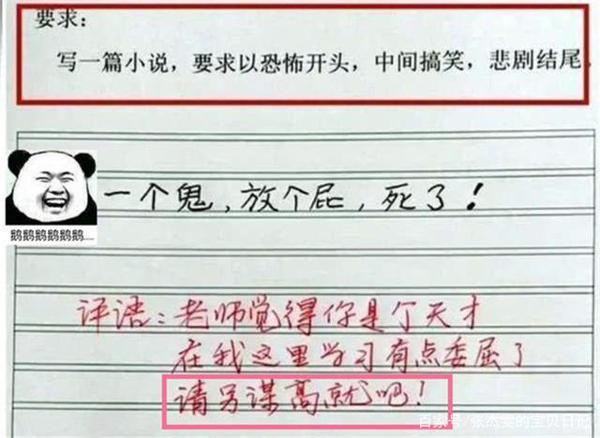 要求：
写一篇小说，要求以恐怖开头，中间搞笑，悲剧结尾。
一个鬼，放个屁，死了！
鹅鹅鹅鹅鹅鹅......
评语：老师觉得你是个天才
在我这里学习有点委屈了
请另谋高就吧！
百家号/张杰雯的宝贝日记